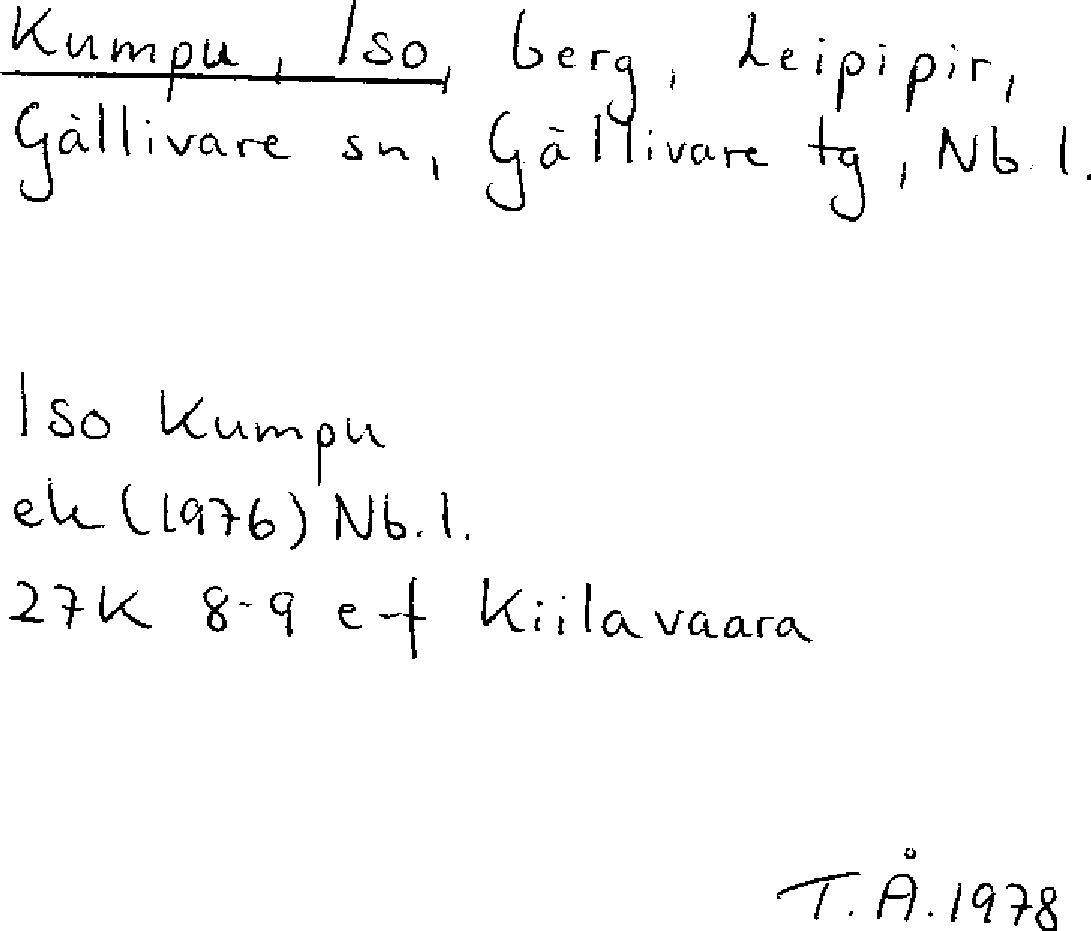 Kumpu, Iso, berg, Leipipir,
Gällivare sn, Gällivare tg, Nb.l.
Iso Kumpu
ek (1976) Nb.l.
27K 8-9 e-f Kiilavaara
T.Å.1978